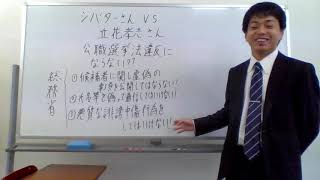 シバターさん VS
立花孝志さん
公職選挙法違反に
ならない??
総務省
①候補者に関し虚偽の
事項を公開してはならない
②氏名等を偽って通信してはいけない
③悪質な誹謗中傷行為を
してはいけない!